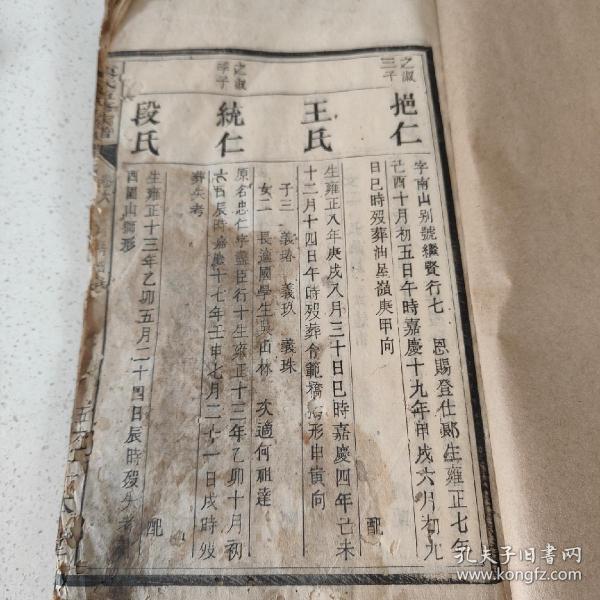 之淑三子
挹仁
字南山别號繼賢行七　恩賜登仕郎生雍正七年
己酉十月初五日午時嘉慶十九年甲戌六月初九
日巳時殁葬油星嶺庚甲向
配
王氏
生雍正八年庚戌八月三十日巳時嘉慶四年己未
十二月十四日午時殁葬合範橋形申寅向
子三　義璿　義玖　義珠
女二　長適國學生吳山林　次適何祖達
之淑季子
統仁
原名忠仁字盡臣行十生雍正十三年乙卯十月初
六日辰時嘉慶十七年壬申七月二十一日戌時殁
葬失考
配
段氏
生雍正十三年乙卯五月二十四日辰時殁失考
西園山獅形
孔夫子旧书网
www.kongfz.com